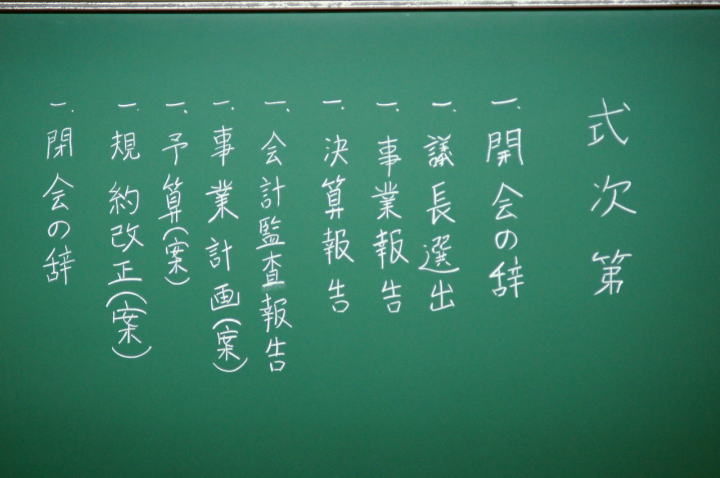 式次第
一、開会の辞
一、議長選出
一、事業報告
一、決算報告
一、会計監査報告
一、事業計画(案)
一、予算(案)
一、規約改正(案)
一、閉会の辞